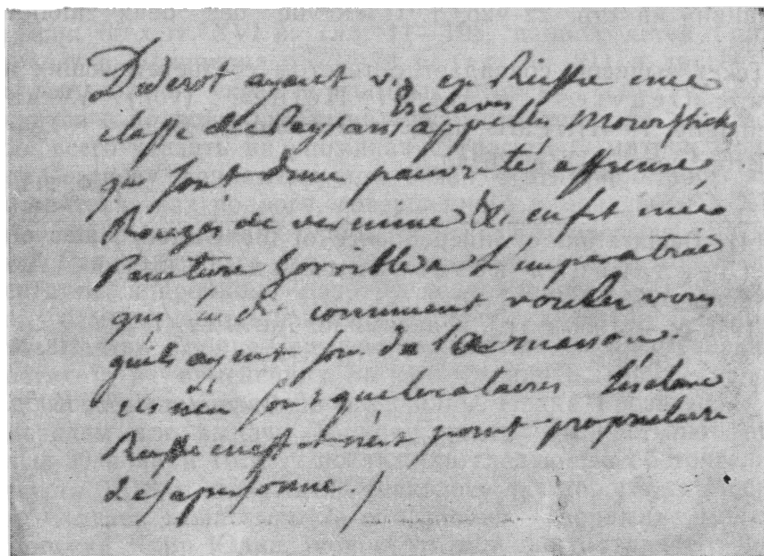 Diderot ayant vu en Russie une
Esclaves
classe de Paysans appellés Mourifticks
qui sont d'une pauvreté affreuse
Rongés de vermine en fit une
Peinture horrible a L'imperatrice
qui lui dit comment voulez vous
qu'ils ayent soin de la maison
ils n'en sont que locataires L'esclave
Russe en effet n'est point proprietaire
de sa personne. /